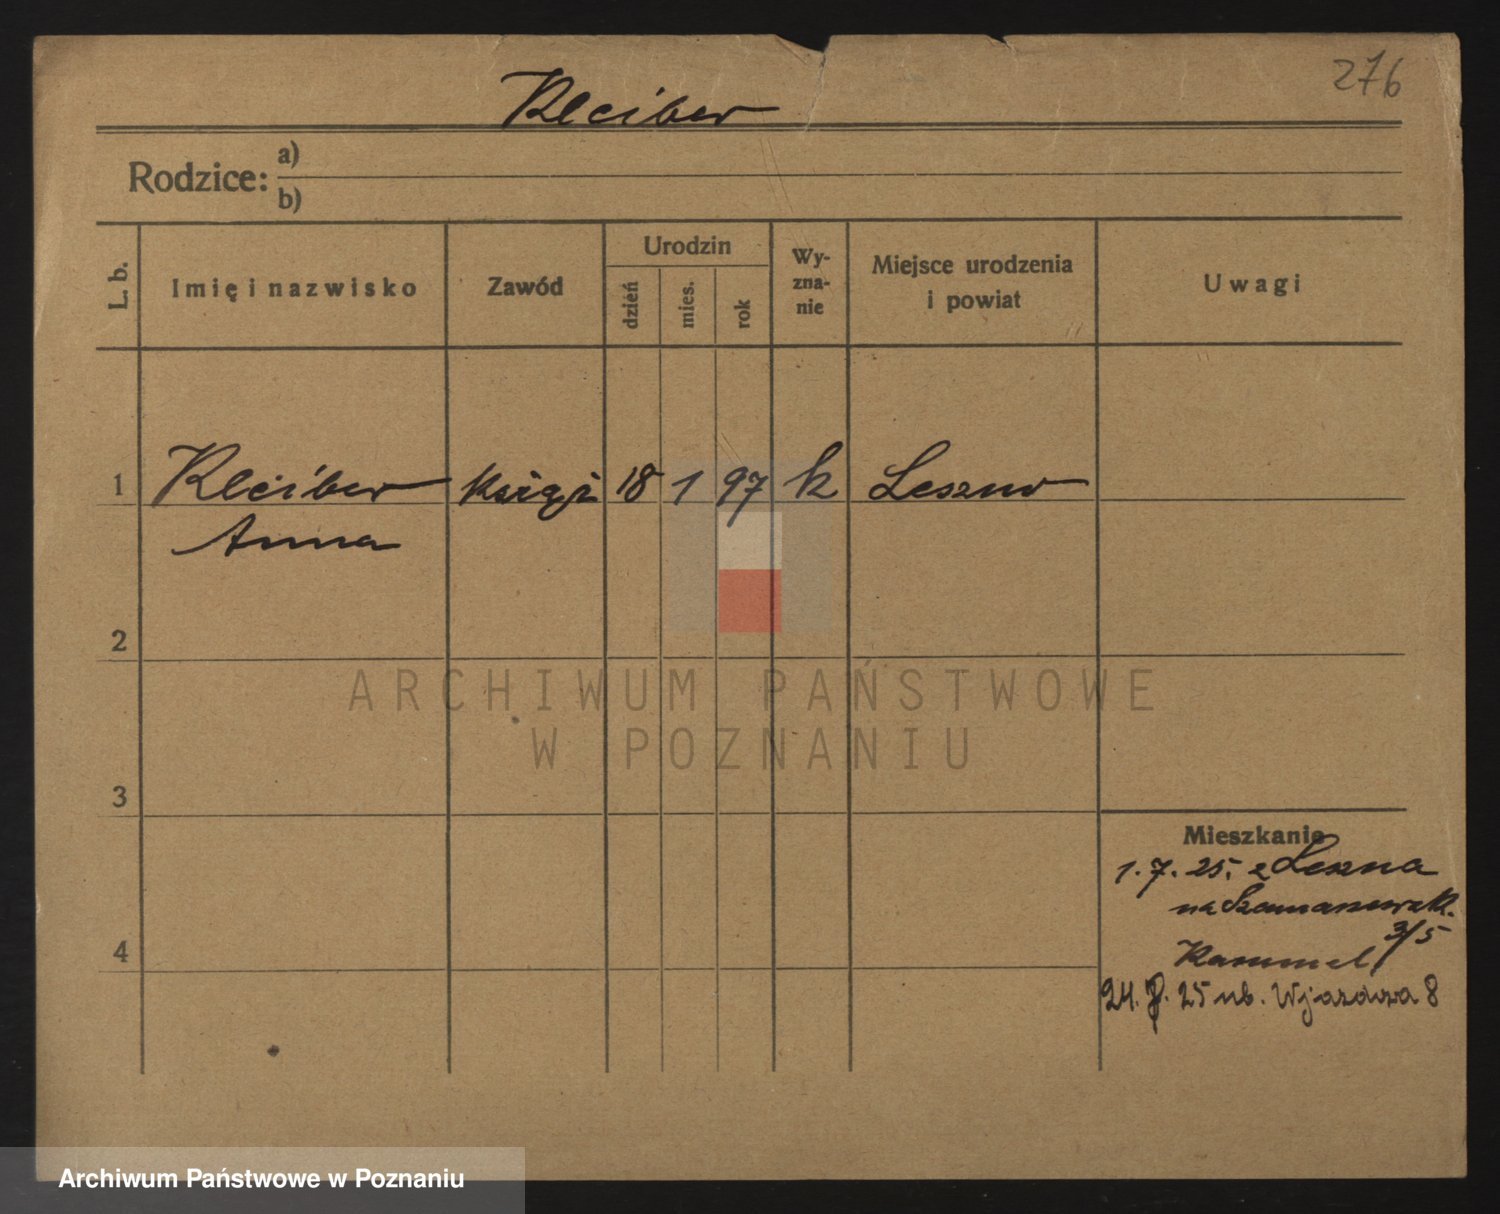 276
Kleiber
Rodzice:
a)
b)
L. b.
Imię i nazwisko
Zawód
Urodzin
dzień
mies.
rok
Wy-
zna-
nie
Miejsce urodzenia
i powiat
Uwagi
1
Kleiber
Anna
18
1
97
k
Leszno
2
3
4
Mieszkanie
1.7.25. z Leszna
na
3/5
Kammel
24. 25 ub. Wjazdowa 8
ARCHIWUM PAŃSTWOWE
W POZNANIU
Archiwum Państwowe w Poznaniu